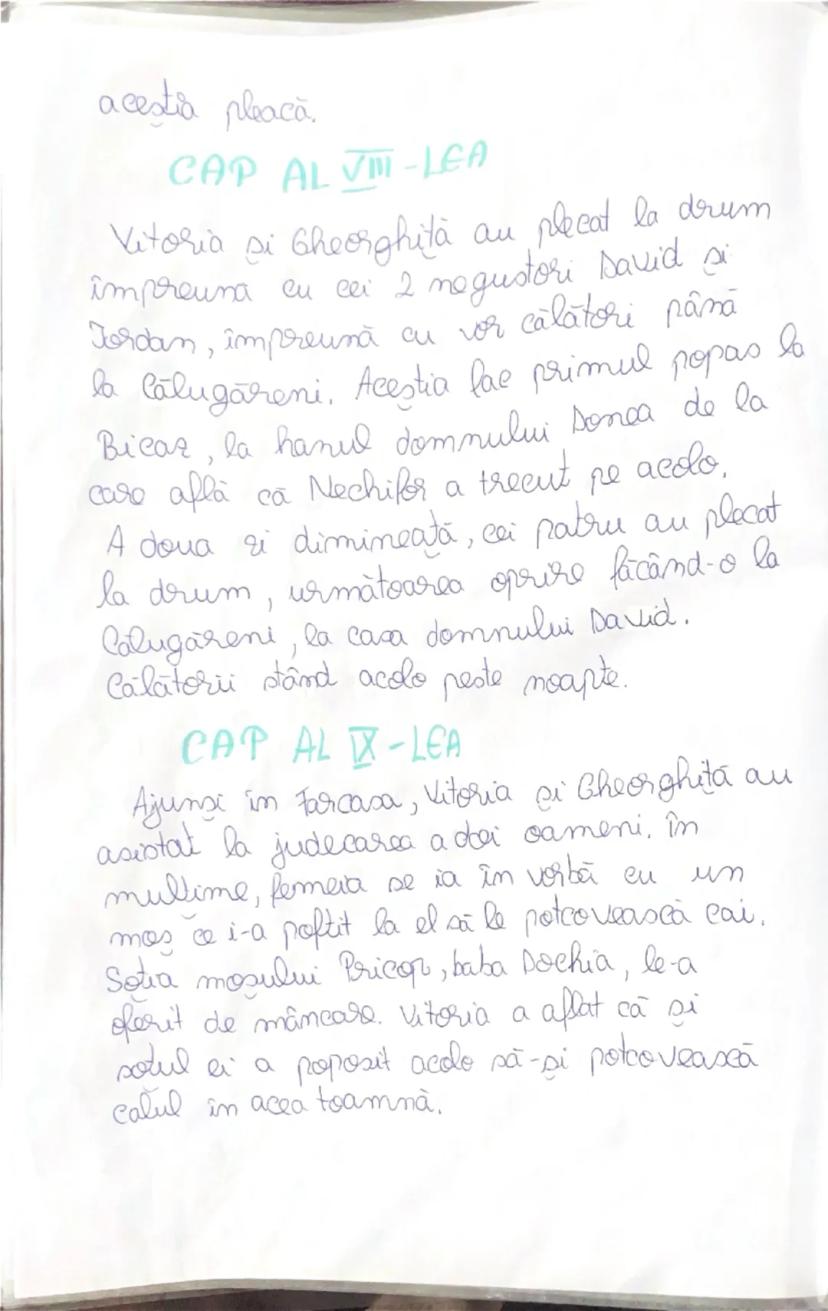 aceștia pleacă.
CAP AL VIII-LEA
Vitoria și Gheorghiță au plecat la drum
împreuna cu cei 2 negustori David și
Iordan, împreună cu vor călători până
la Călugăreni. Aceștia fac primul popas la
Bicaz, la hanul domnului Donea de la
care află că Nechifor a trecut pe acolo.
A doua zi dimineață, cei patru au plecat
la drum, următoarea oprire făcând-o la
Călugăreni, la casa domnului David.
Călătorii stând acolo peste noapte.
CAP AL IX-LEA
Ajunși în Farcasa, Vitoria și Gheorghiță au
asistat la judecarea a doi oameni. în
mulțime, femeia se ia în vorbă cu un
moș ce i-a poftit la el să le potcovească cai.
Soția moșului Pricop, baba Dochia, le-a
oferit de mâncare. Vitoria a aflat că și
soțul ei a poposit acolo să-și potcovească
calul în acea toamnă.